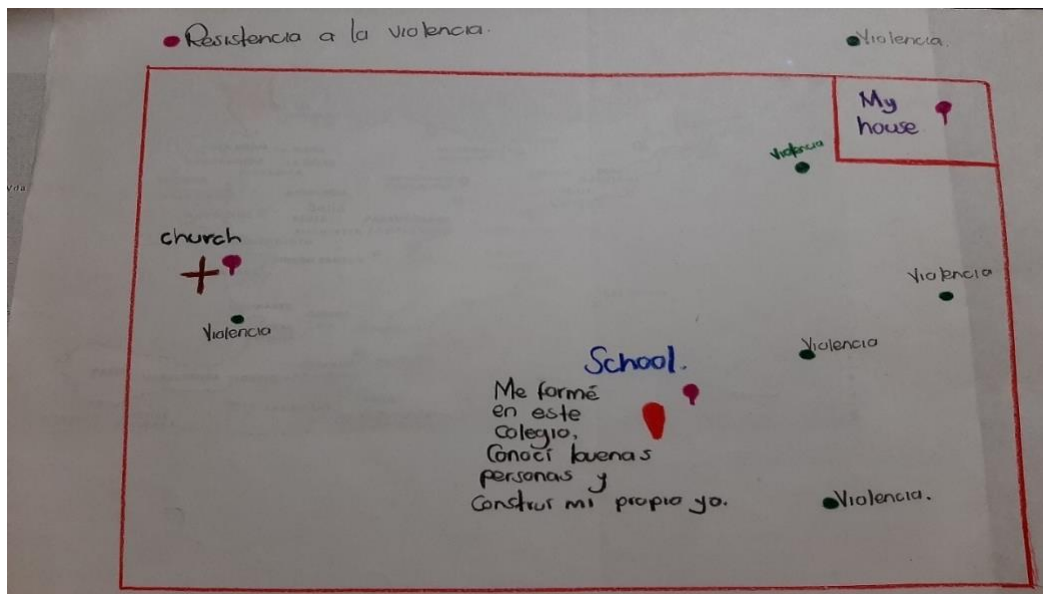 Resistencia a la violencia.
Violencia.
My
house
Violencia
church
Violencia
Violencia
Violencia
School.
Me formé
en este
colegio,
Conocí buenas
personas y
Construí mi propio yo.
Violencia.